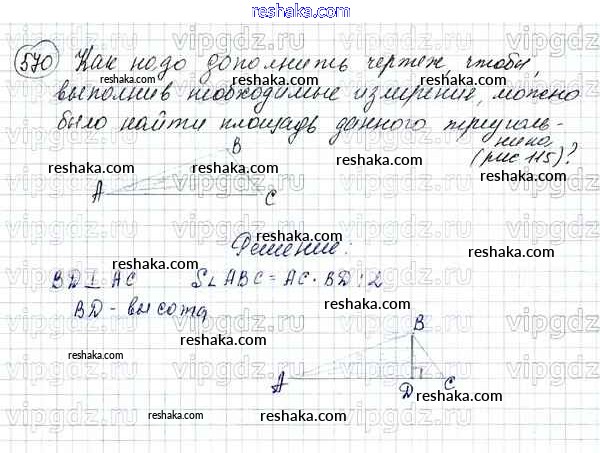 reshaka.com
570 Как надо дополнить чертеж, чтобы,
выполнив необходимые измерения, можно
было найти площадь данного треуголь-
ника (рис 115)?
B
A
C
Решение:
BD ⊥ AC S∠ABC = AC · BD : 2
BD - высота
B
A
D
C
reshaka.com
reshaka.com
reshaka.com
reshaka.com
reshaka.com
reshaka.com
reshaka.com
reshaka.com
reshaka.com
reshaka.com
reshaka.com
reshaka.com
reshaka.com
vipgdz.ru
vipgdz.ru
vipgdz.ru
vipgdz.ru